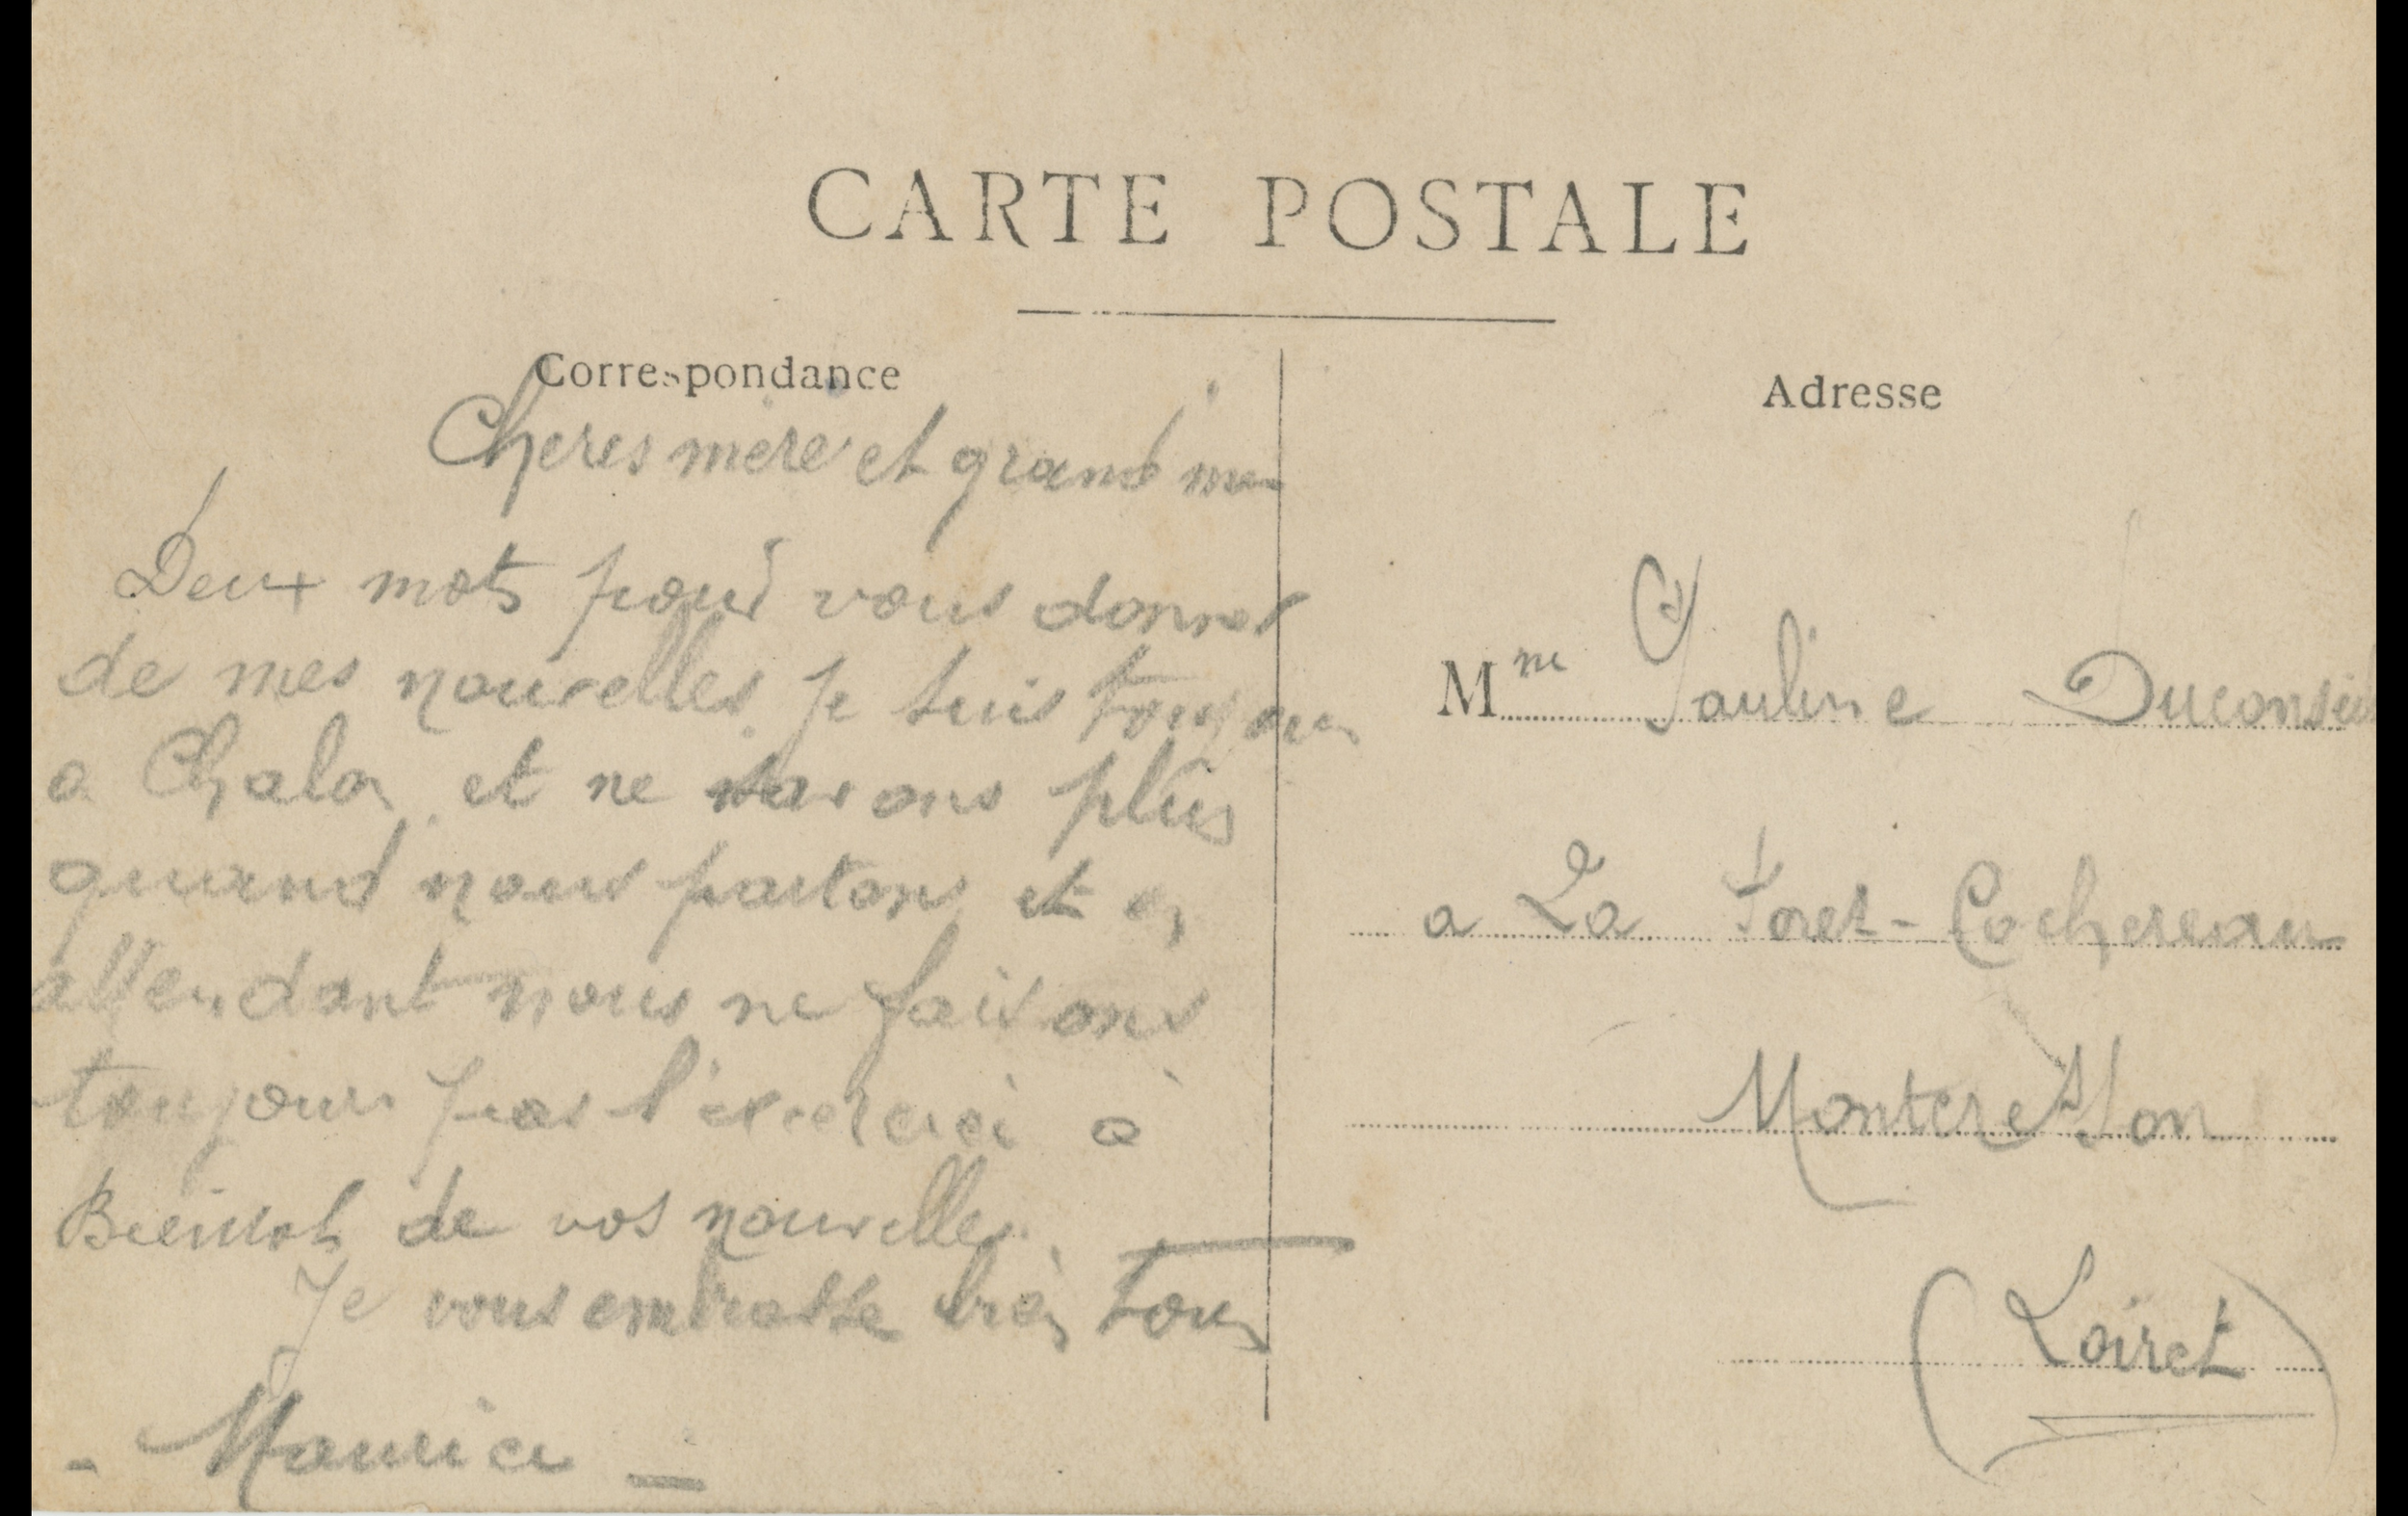 CARTE POSTALE
Correspondance
Cheres mere et grand me
Deux mots pour vous donner
de mes nouvelles. Je suis toujours
a Chalon et ne savons plus
quand nous partons et en
attendant nous ne faisons
toujours pas l'exercice à
Bientot de vos nouvelles.
Je vous embrasse bien tous
- Maurice -
Adresse
Mme Pauline
a La Foret-Cochereau
Montcresson
(Loiret)